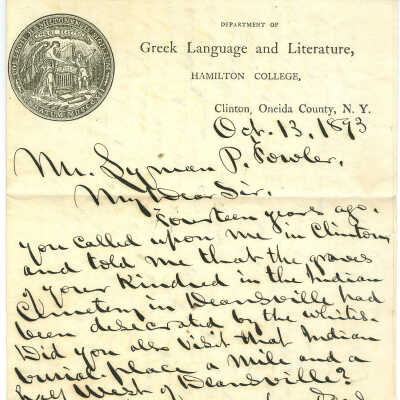 DEPARTMENT OF
Greek Language and Literature,
HAMILTON COLLEGE,
Clinton, Oneida County, N. Y.
Oct. 13, 1893
Mr. Lyman P. Fowler,
My Dear Sir,
Fourteen years ago,
you called upon me in Clinton,
and told me that the graves
of your Kindred in the Indian
Cemetery in Deansville had
been desecrated by the whites.
Did you also visit that Indian
burial-place a mile and a
half West of Deansville?